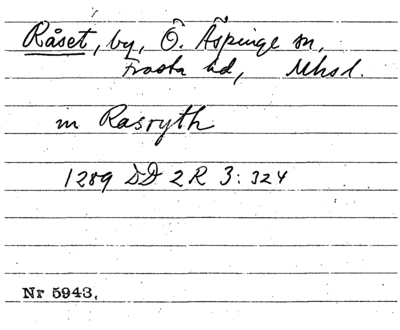 Råset, by, Ö. Äspinge sn,
Frosta hd, Mhsl.
in Rasryth
1289 DD 2R 3:324
Nr 5943.